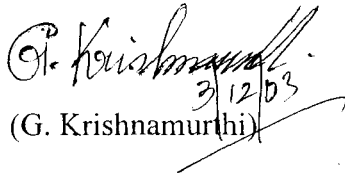 G. Krishnamurthi
3/12/03
(G. Krishnamurthi)